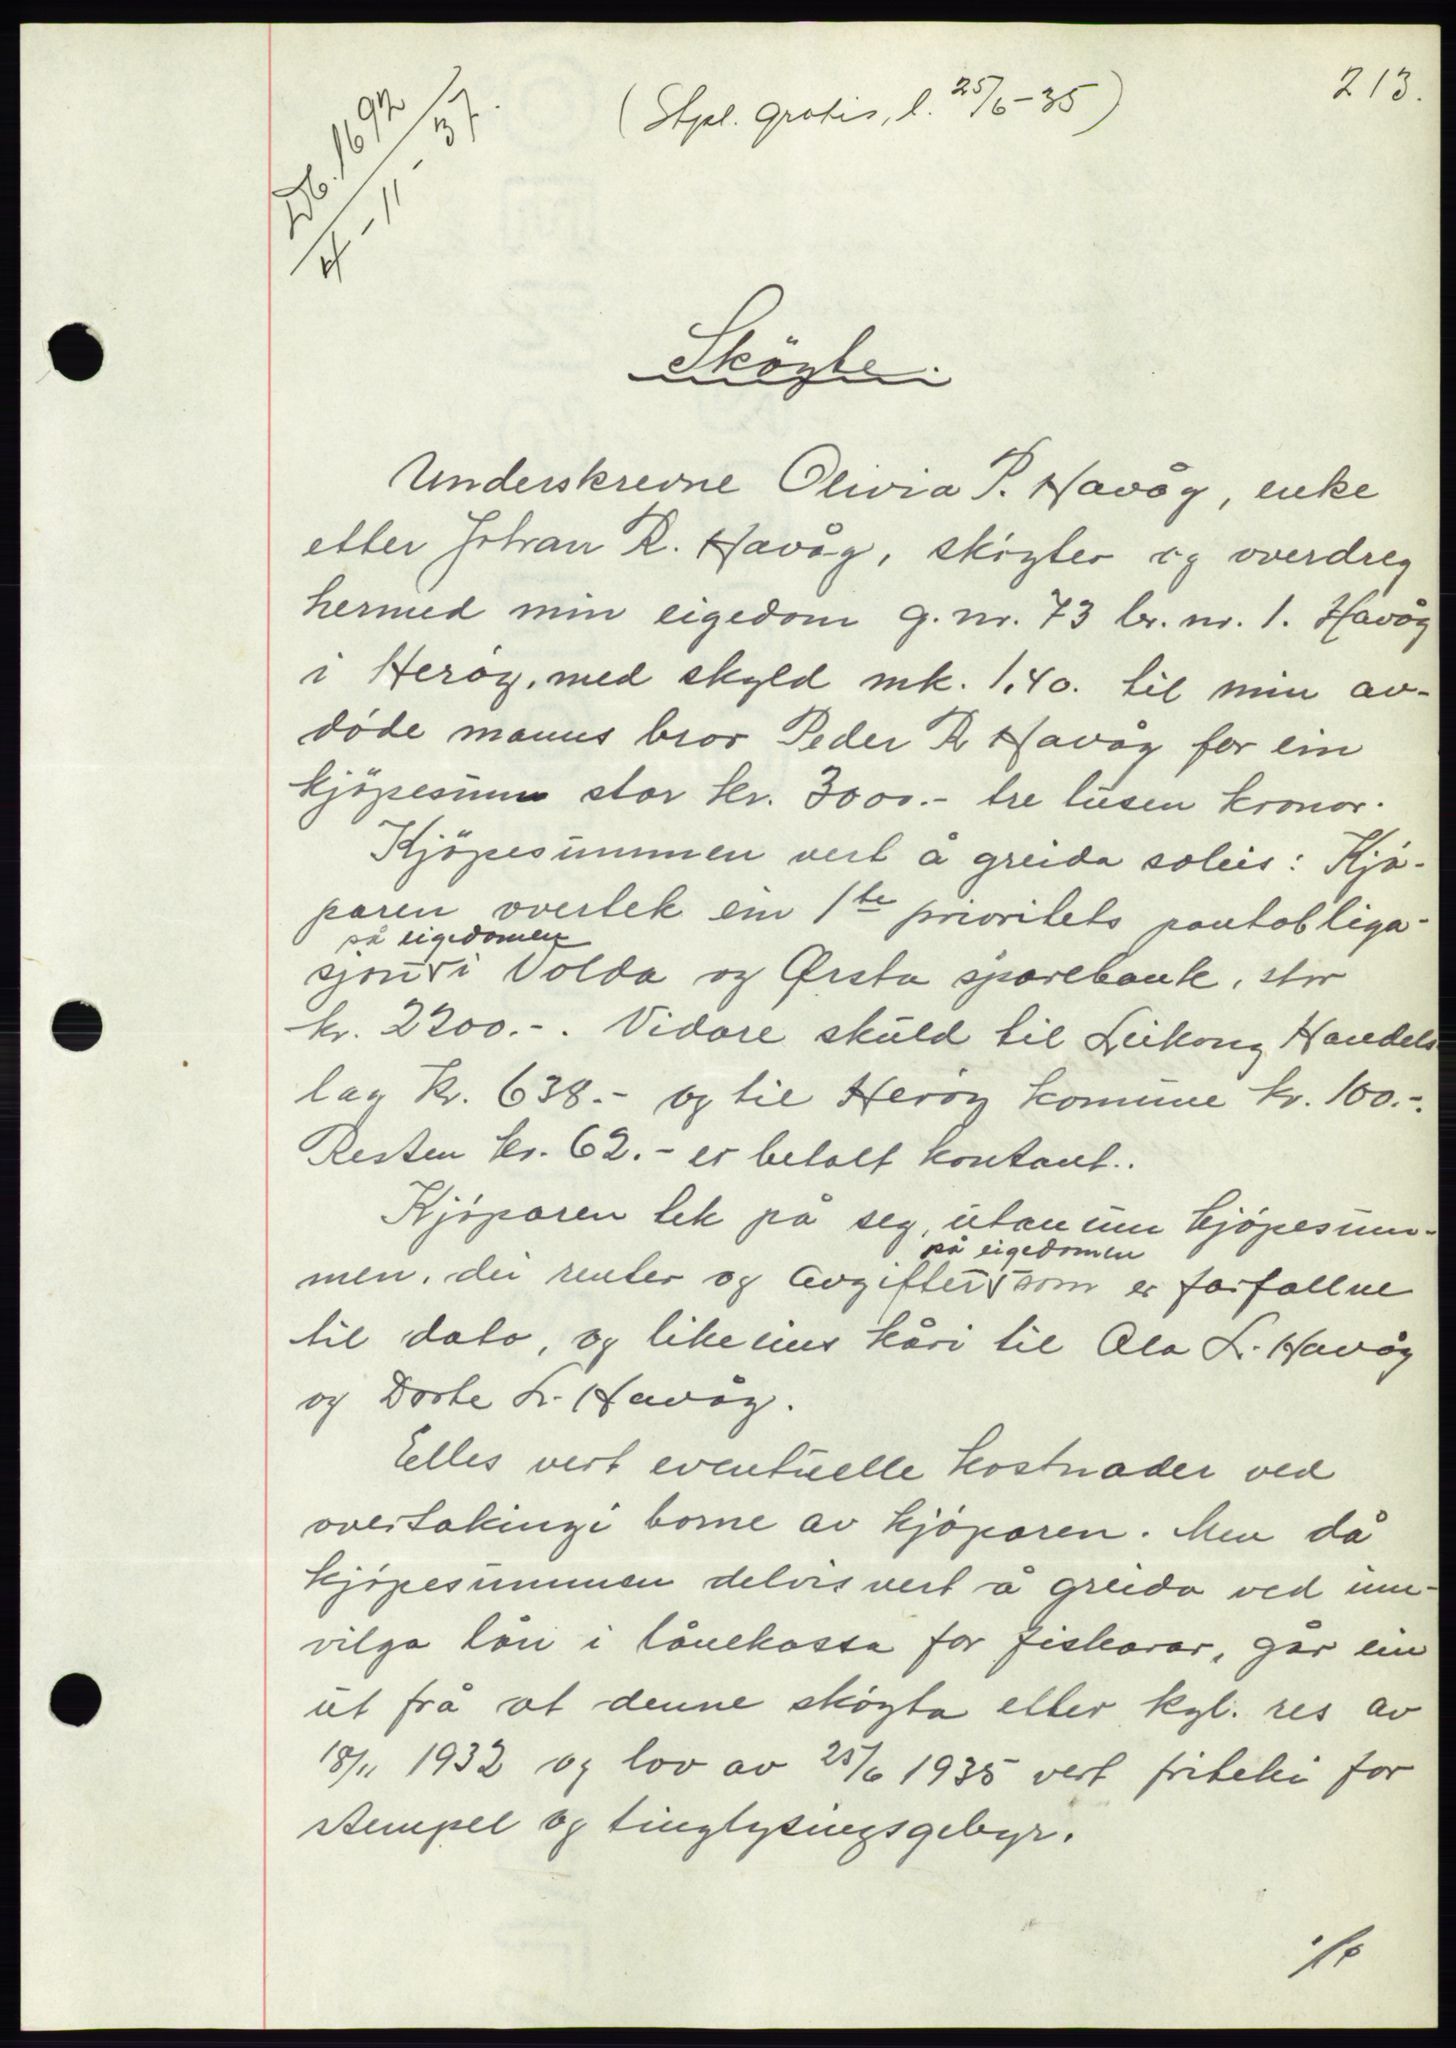 213.
(Stpl. gratis, l. 25/6-35)
Db. 1692
4-11-37.
Sköyte.
Underskrevne Olivia P. Havåg, enke
etter Johan R. Havåg, skøyter og overdreg
hermed min eigedom g. nr. 73 br. nr. 1. Havåg
i Herøy, med skyld mk. 1,40. til min av-
døde manns bror Peder R Havåg for ein
kjöpesum stor kr. 3000.- tre tusen kronor.
Kjöpesummen vert å greida soleis: Kjø-
paren overtek ein 1te prioritets pantobliga-
på eigedomen
sjon i Volda og Ørsta sparebank, stor
kr. 2200.-. Vidare skuld til Leikong Handels
lag kr. 638.- og til Herøy komune kr. 100.-.
Resten kr. 62.- er betalt kontant..
Kjøparen tek på seg, utanum kjøpesum-
på eigedomen
men, dei renter og avgifter som er forfallne
til dato, og likeeins kåri til Ola L. Havåg
og Dorte L. Havåg.
Elles vert eventuelle kostnader ved
overtakingi borne av kjøparen. Men då
kjøpesummen delvis vert å greida ved inn-
vilga lån i lånekassa for fiskarar, går ein
ut frå at denne skøyta etter kgl. res av
18/11 1932 og lov av 25/6 1935 vert friteki for
stempel og tinglysingsgebyr.